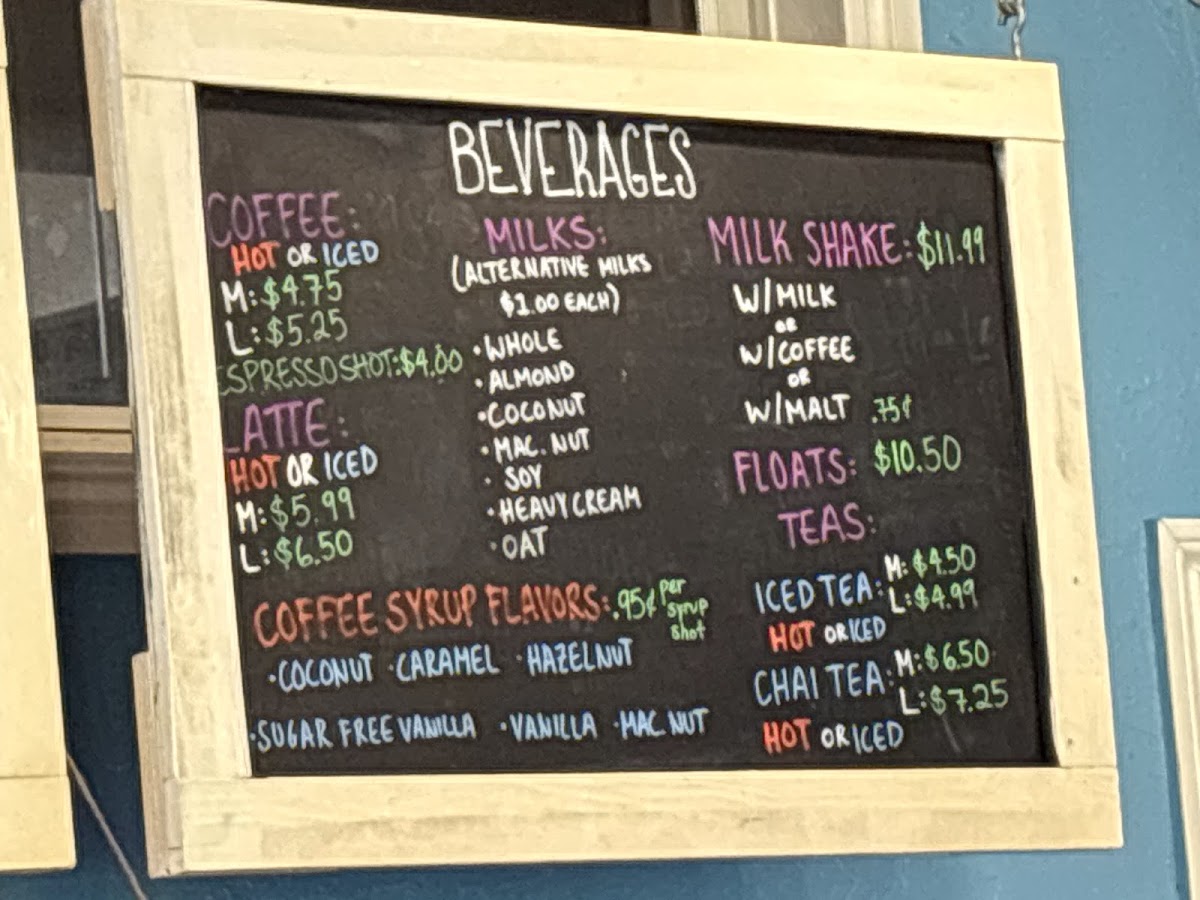 BEVERAGES
COFFEE:
HOT OR ICED
M: $4.75
L: $5.25
ESPRESSO SHOT: $4.00
LATTE:
HOT OR ICED
M: $5.99
L: $6.50
MILKS:
(ALTERNATIVE MILKS
$1.00 EACH)
• WHOLE
• ALMOND
• COCONUT
• MAC. NUT
• SOY
• HEAVY CREAM
• OAT
COFFEE SYRUP FLAVORS: .95¢ per syrup shot
• COCONUT • CARAMEL • HAZELNUT
• SUGAR FREE VANILLA • VANILLA • MAC NUT
MILK SHAKE: $11.99
W/MILK
OR
W/COFFEE
OR
W/MALT .75¢
FLOATS: $10.50
TEAS:
ICED TEA: M: $4.50
L: $4.99
HOT OR ICED
CHAI TEA: M: $6.50
L: $7.25
HOT OR ICED